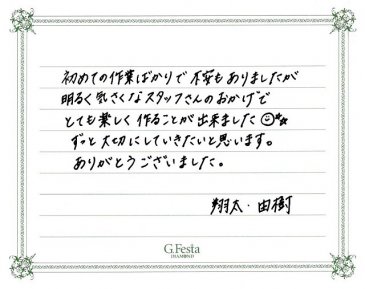 初めての作業ばかりで不安もありましたが
明るく気さくなスタッフさんのおかげで
とても楽しく作ることが出来ました
ずっと大切にしていきたいと思います。
ありがとうございました。
翔太・由樹
G.Festa
DIAMOND